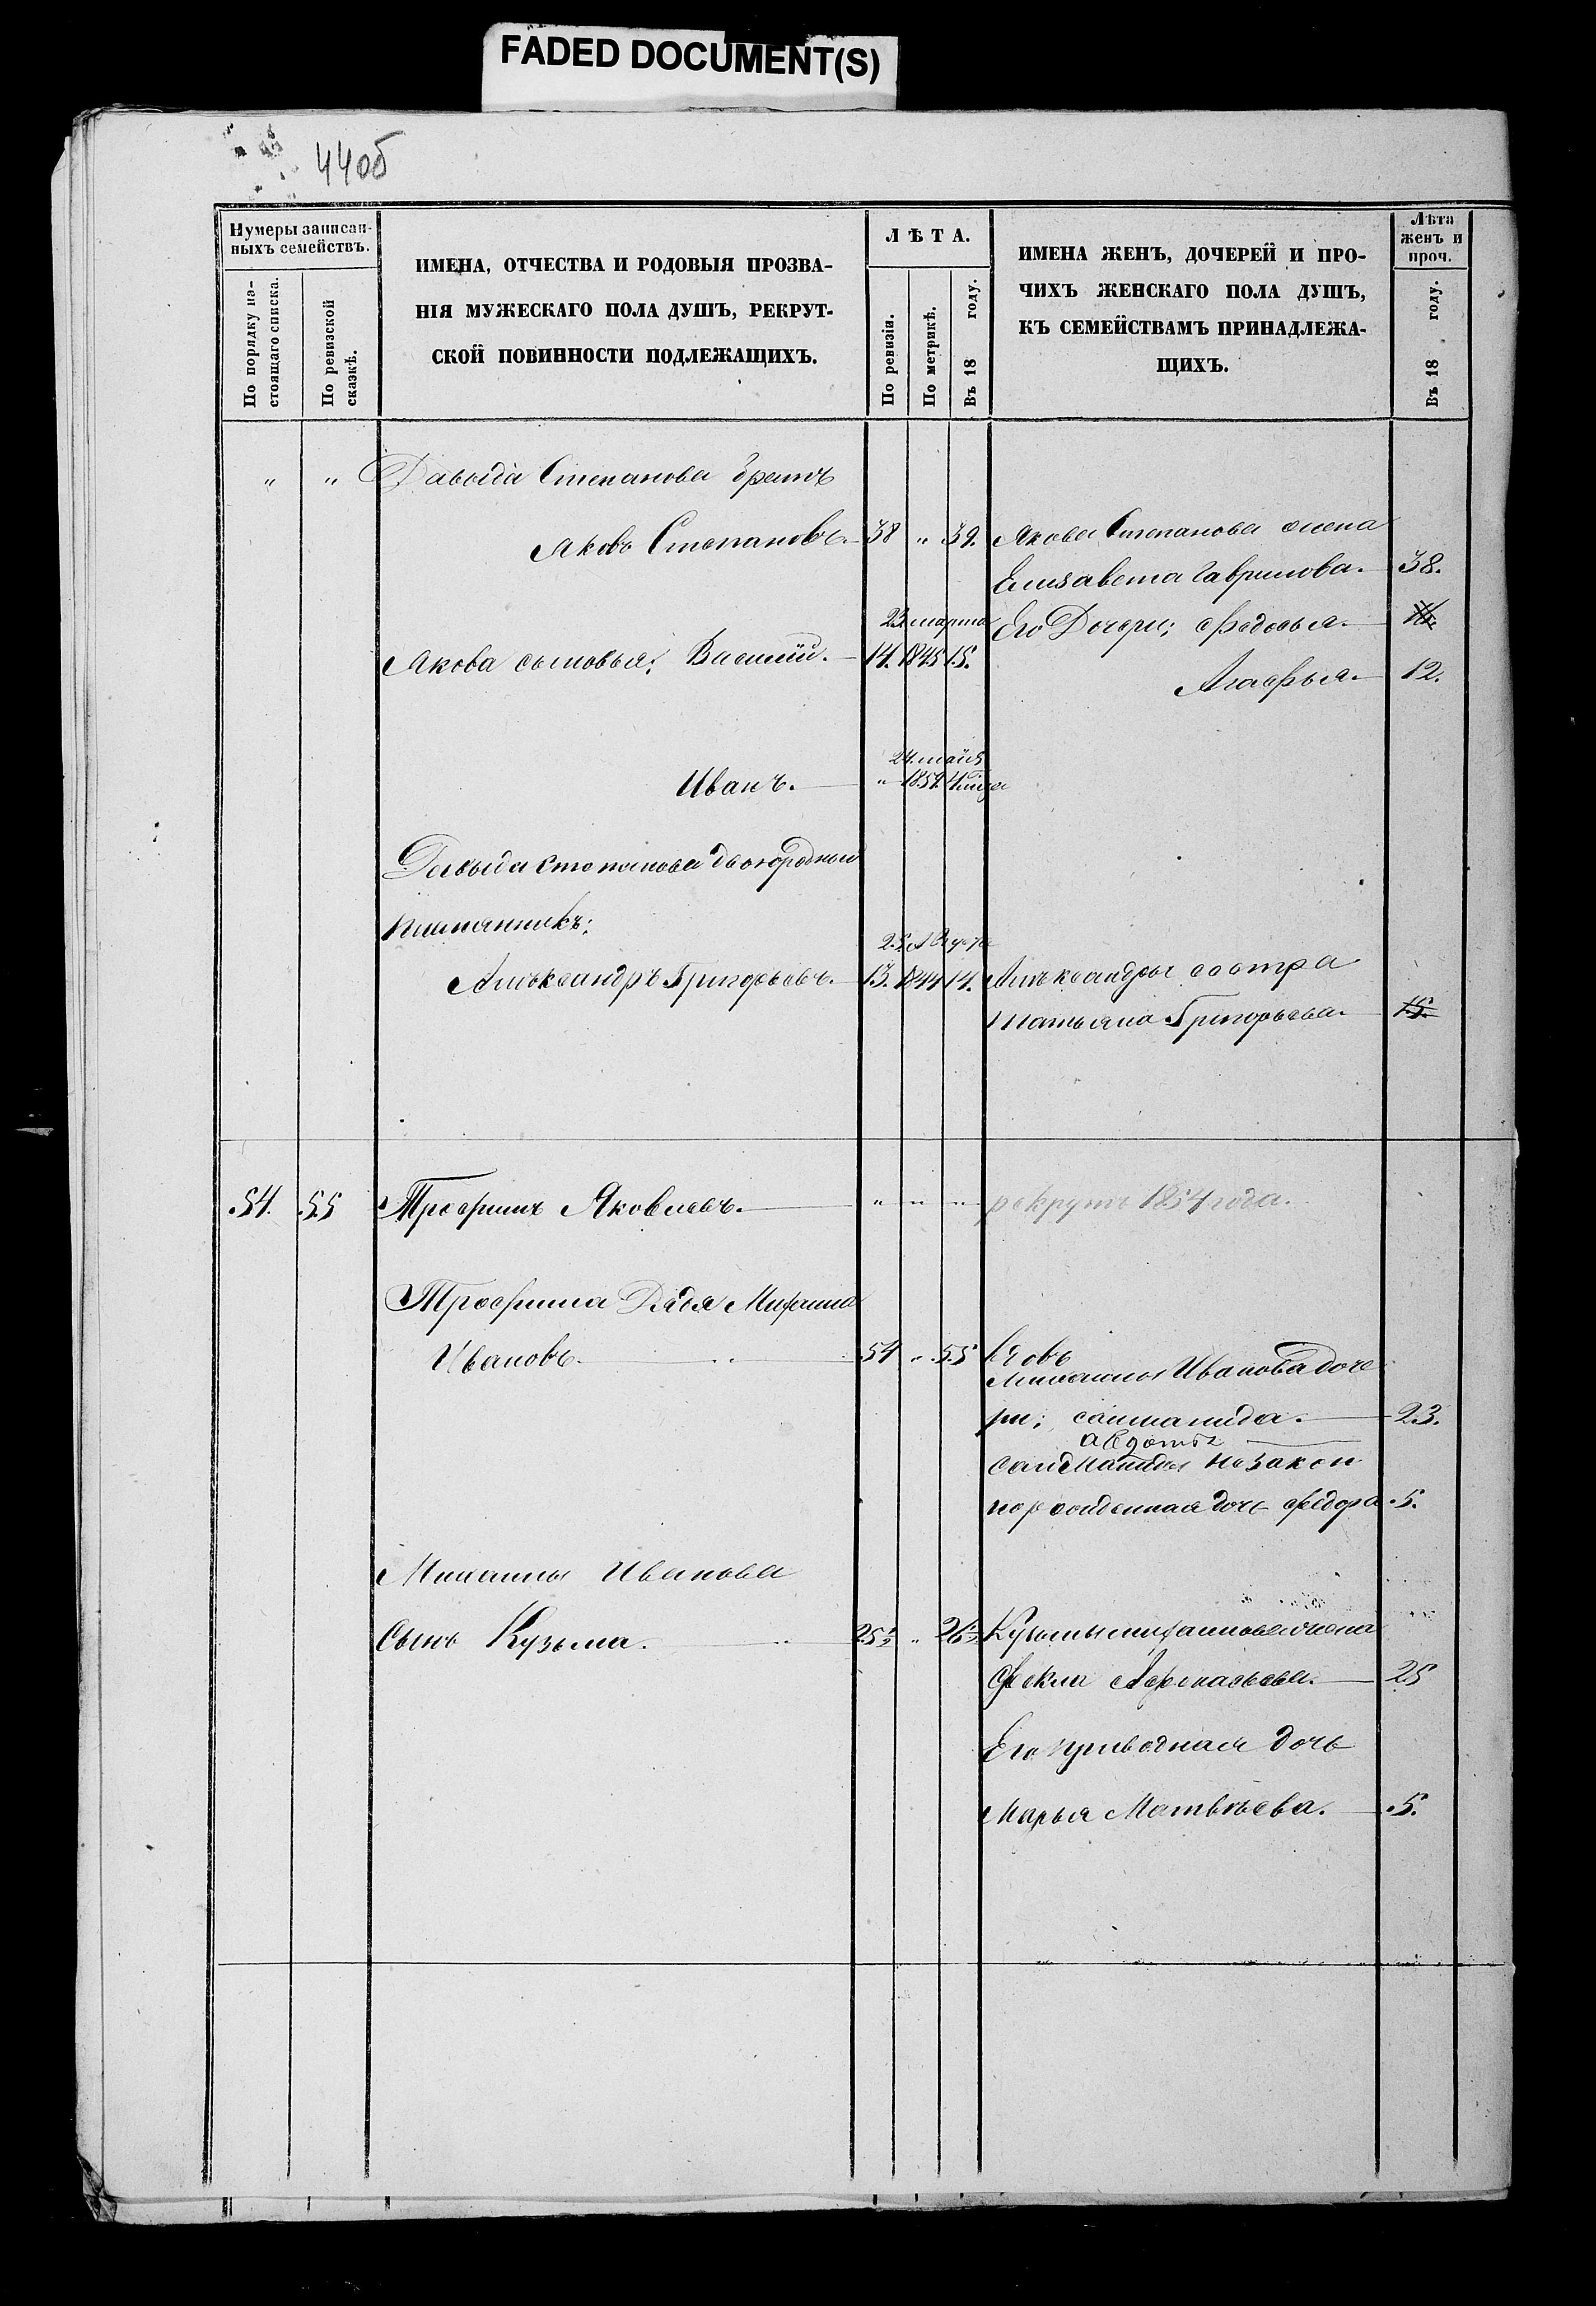 FADED DOCUMENT(S)
44об
Нумеры записан-
ныхъ семействъ.
По порядку на-
стоящаго списка.
По ревизской
сказкѣ.
ИМЕНА, ОТЧЕСТВА И РОДОВЫЯ ПРОЗВА-
НІЯ МУЖЕСКАГО ПОЛА ДУШЪ, РЕКРУТ-
СКОЙ ПОВИННОСТИ ПОДЛЕЖАЩИХЪ.
ЛѢТА.
По ревизіи.
По метрикѣ.
Въ 18 году.
ИМЕНА ЖЕНЪ, ДОЧЕРЕЙ И ПРО-
ЧИХЪ ЖЕНСКАГО ПОЛА ДУШЪ,
КЪ СЕМЕЙСТВАМЪ ПРИНАДЛЕЖА-
ЩИХЪ.
Лѣта
женъ и
проч.
Въ 18 году.
" " Давыда Степанова братъ
Яковъ Степановъ. 38 " 39. Якова Степанова жена
Елизавета Гаврилова. 38.
23. марта Его Дочери; Федосья.
Якова сыновья; Василій. 14. 1845 15.
Агафья. 12.
24. майя
Иванъ. "
Давыда Степанова двоюродный
племянникъ;
25. Августа
Александръ Григорьевъ. 13. 1844 14. Александра сестра
Татьяна Григорьева. 15.
54. 55 Трофимъ Яковлевъ. " " " рекрутъ 1854 года.
Трофима Дядя Михаила
Ивановъ. 54 " 55 вдовъ
Михаилы Иванова доче
ри; 23.
Авдотья
незакон
норожденная дочь Федора 5.
Михаилы Иванова
Сынъ Кузьма. 25½ " 26½ Кузьмы Михаилова жена
Фекла Афонасьева. 25
Его приводная дочь
Марья Матвѣева. 5.